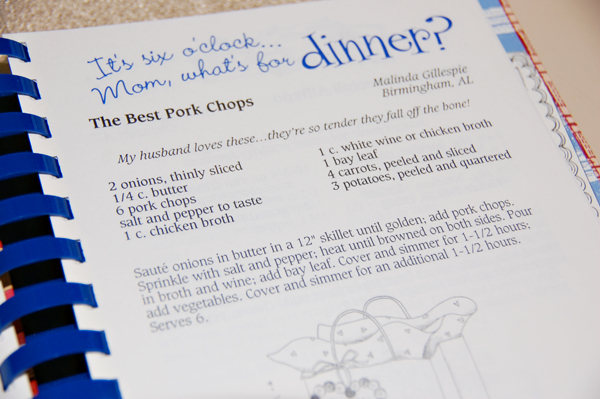 It's six o'clock...
Mom, what's for dinner?
Malinda Gillespie
Birmingham, AL
The Best Pork Chops
My husband loves these...they're so tender they fall off the bone!
2 onions, thinly sliced
1/4 c. butter
6 pork chops
salt and pepper to taste
1 c. chicken broth
1 c. white wine or chicken broth
1 bay leaf
4 carrots, peeled and sliced
3 potatoes, peeled and quartered
Sauté onions in butter in a 12" skillet until golden; add pork chops.
Sprinkle with salt and pepper; heat until browned on both sides. Pour
in broth and wine; add bay leaf. Cover and simmer for 1-1/2 hours;
add vegetables. Cover and simmer for an additional 1-1/2 hours.
Serves 6.